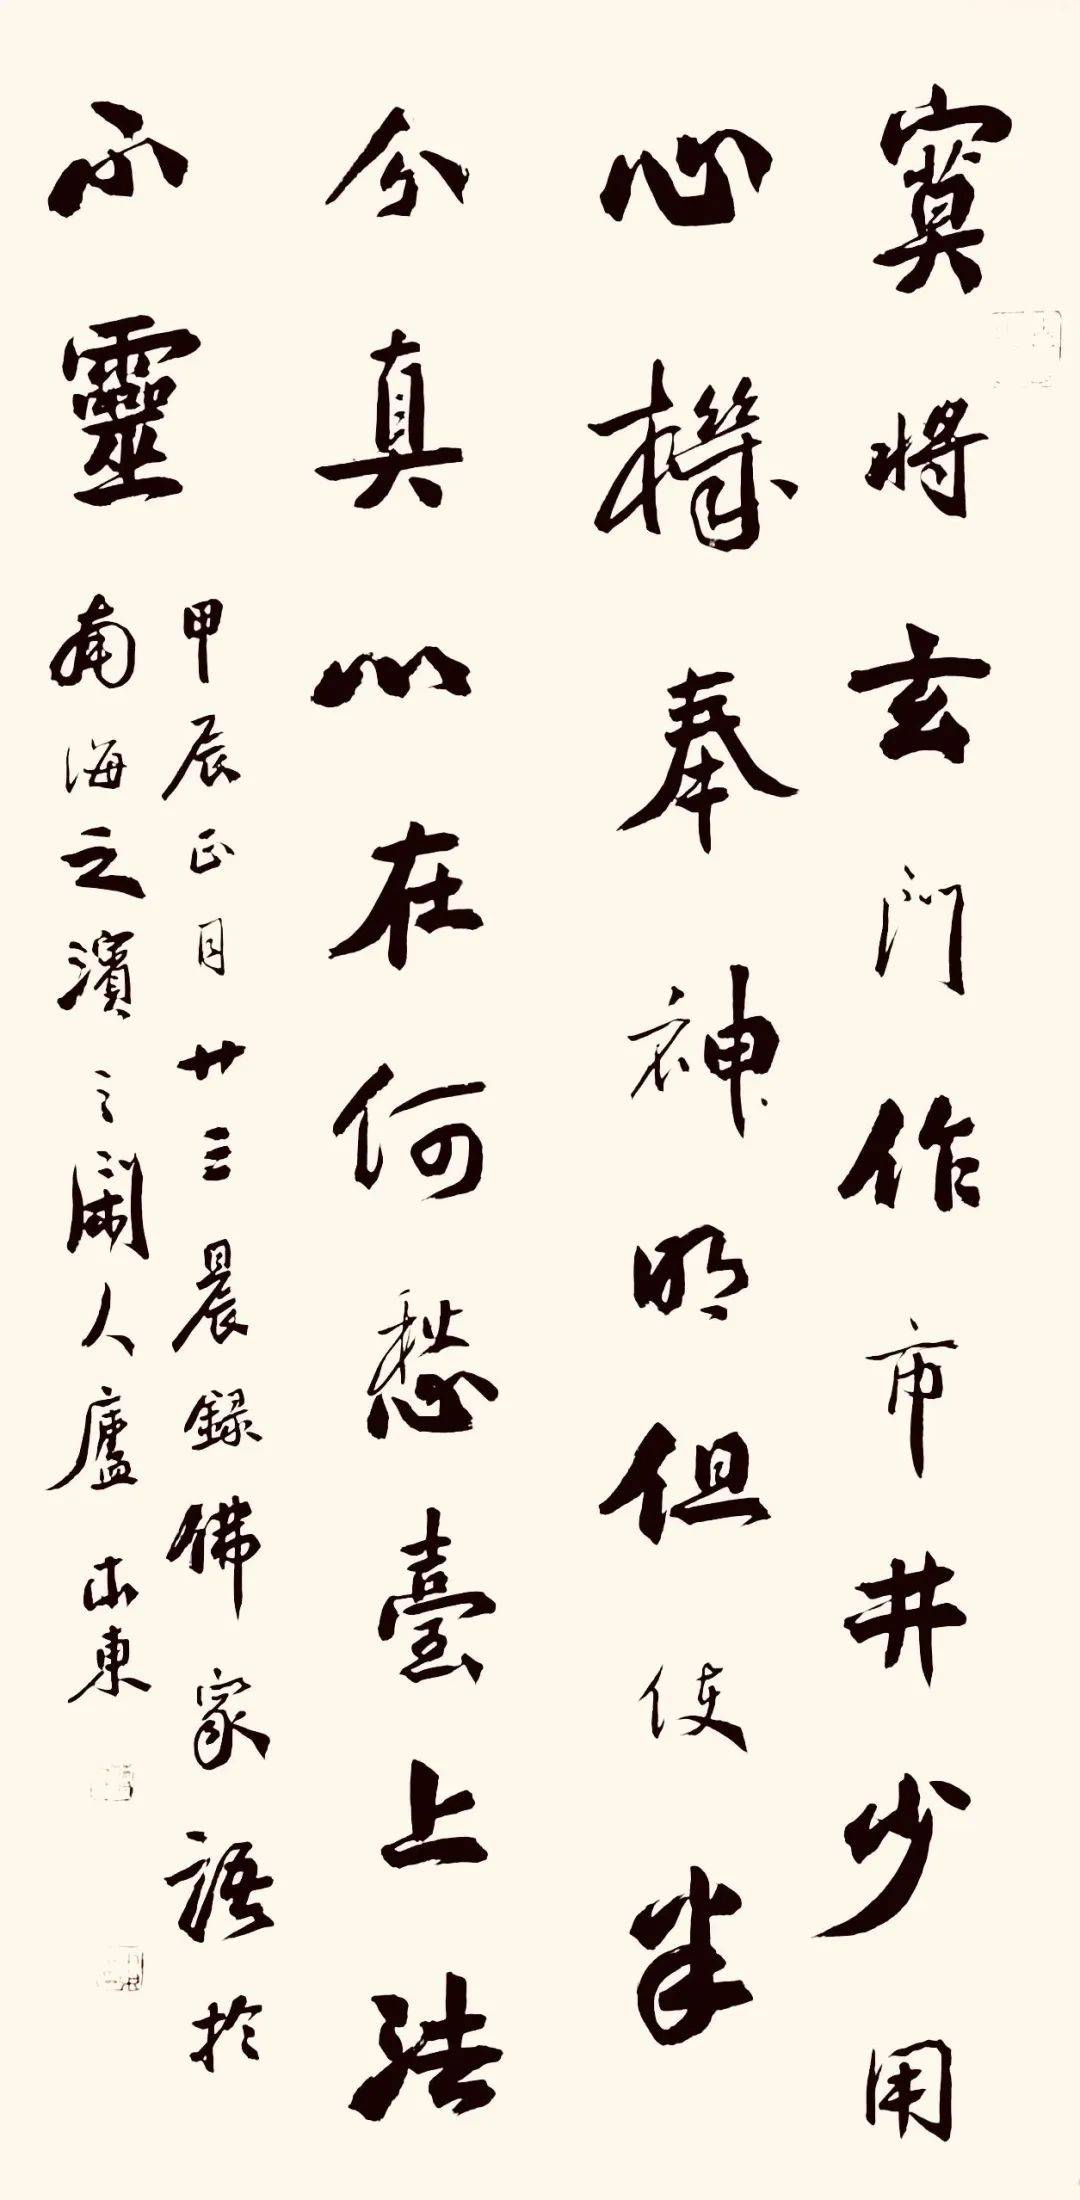 寞將玄門作市井少用
心機奉神明但使半
分真心在何愁臺上法
不靈
甲辰正月廿三晨錄佛家語於
南海之濱之閑人廬東